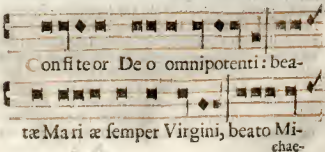 Confiteor Deo omnipotenti : bea-
tæ Mariæ ſemper Virgini, beato Mi-
chae-